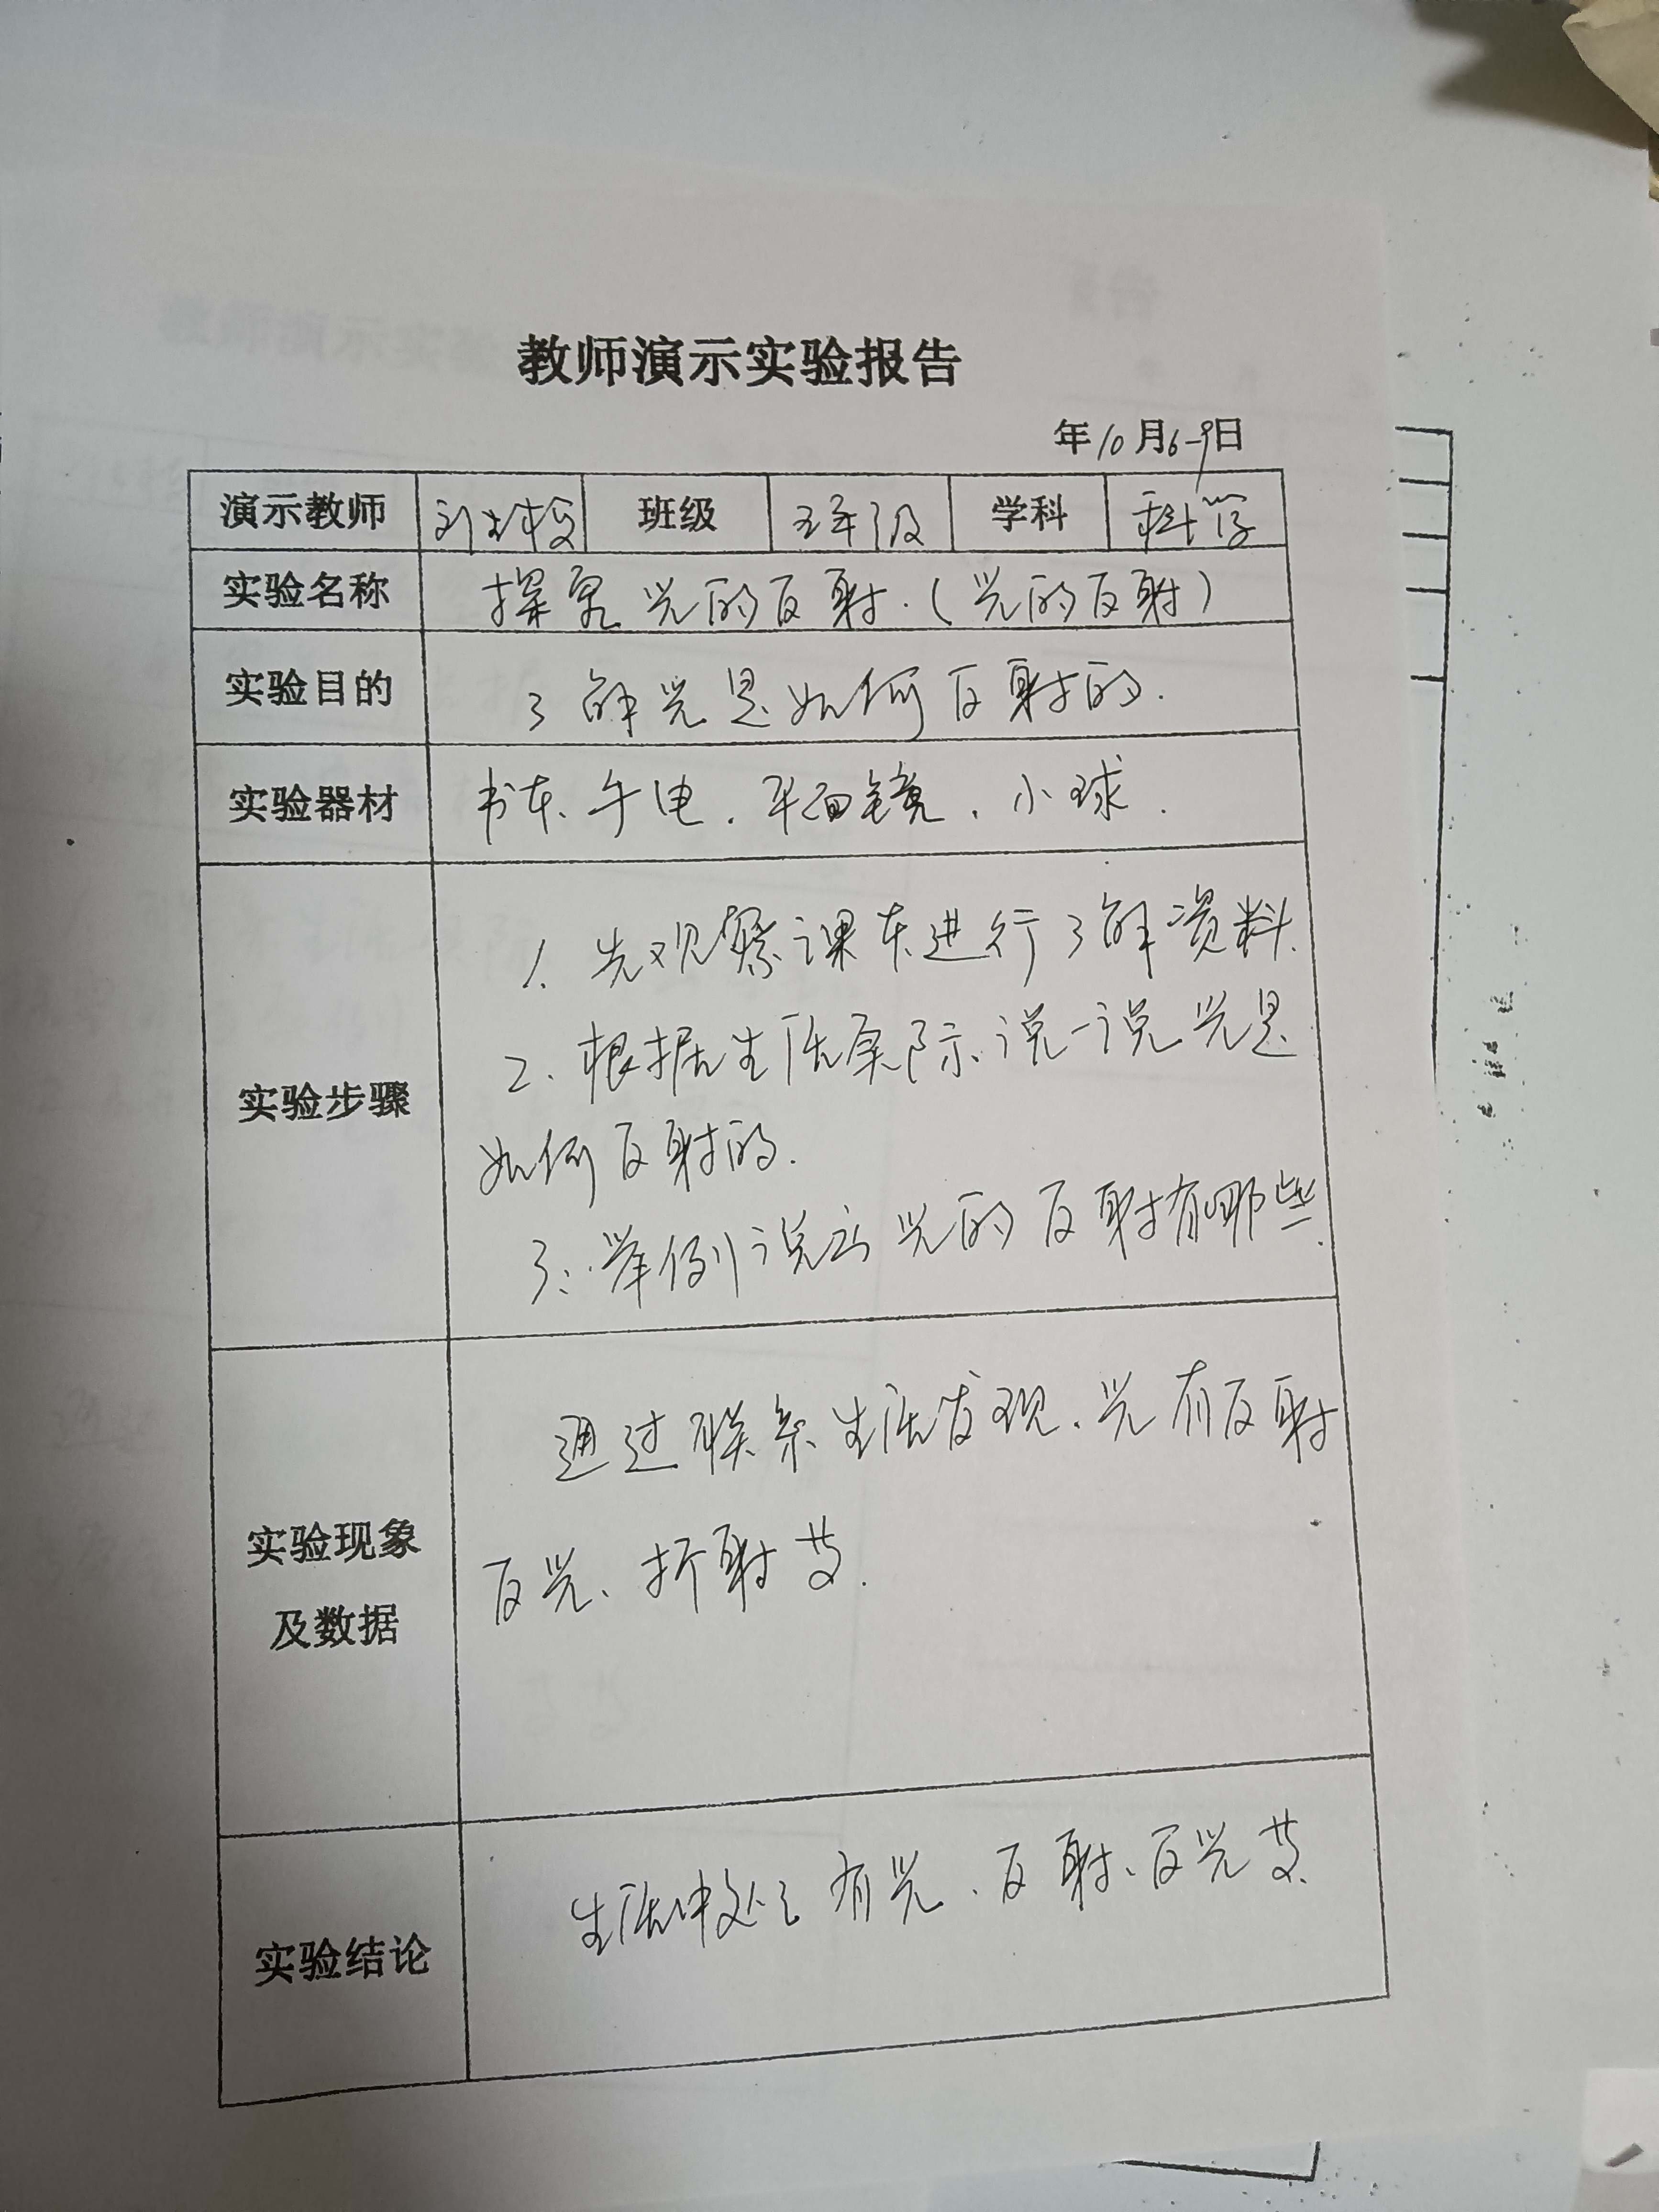 教师演示实验报告
年10月6-9日
演示教师 刘 班级 五年级 学科 科学
实验名称 探究光的反射.(光的反射)
实验目的 了解光是如何反射的.
实验器材 书本、手电、平面镜、小球.
1. 先观察课本进行了解资料.
2、根据生活实际、说一说光是
实验步骤
如何反射的.
3、举例说出光的反射有哪些.
通过联系生活发现、光有反射
实验现象
反光、折射等.
及数据
生活中处处有光、反射、反光等.
实验结论